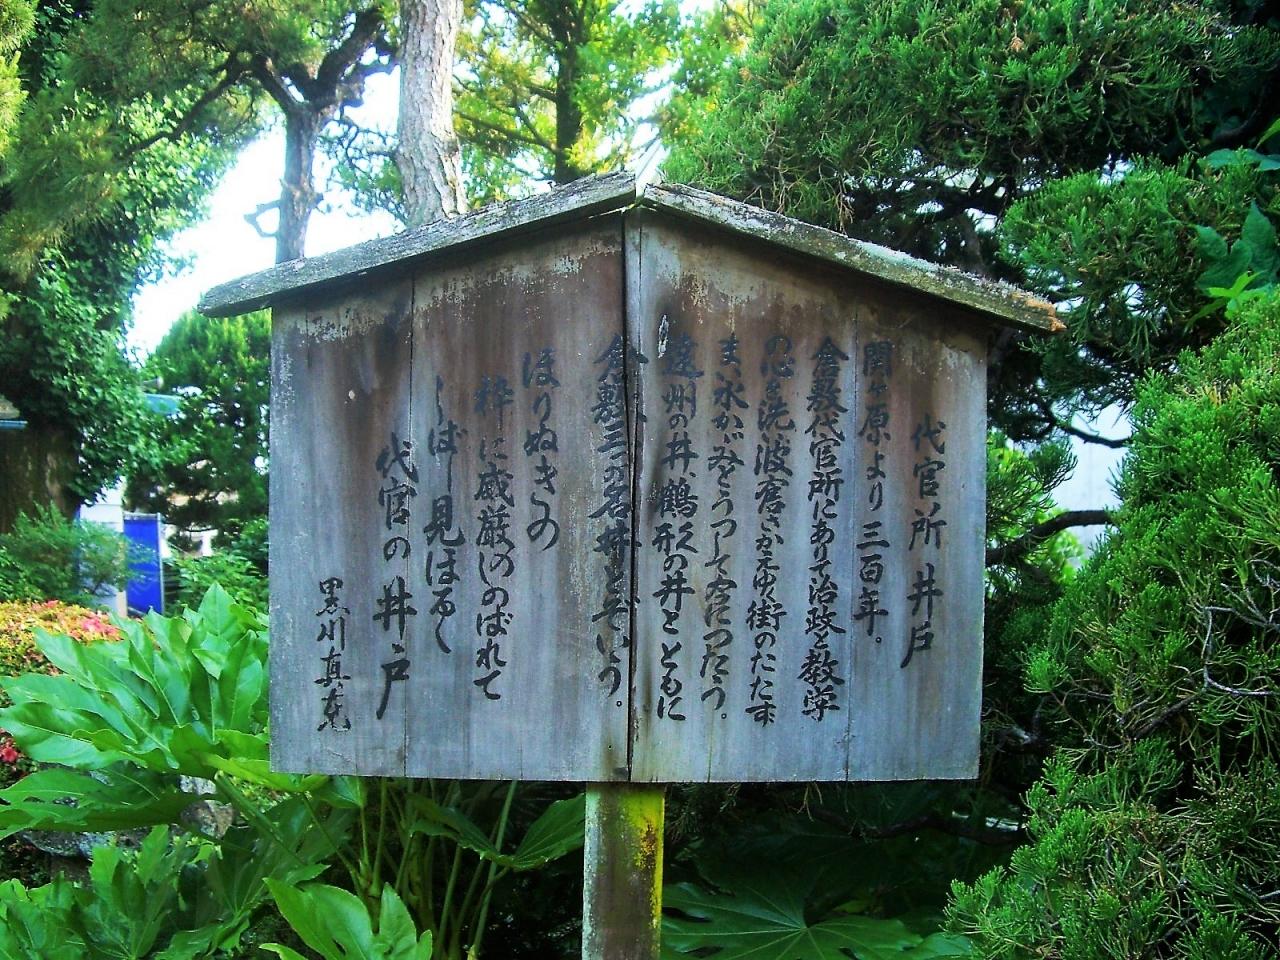 代官所井戸
関ヶ原より三百年。
倉敷代官所にありて治政と教学
の心を洗い波磨さかえゆく街のたたず
まい水かゞみどうつして今につたう。
遠州の井、鶴形の井とともに
倉敷三の名井とぞいう。
ほりぬきの
粋に威厳しのばれて
しばし見ほるゝ
代官の井戸
黒川真